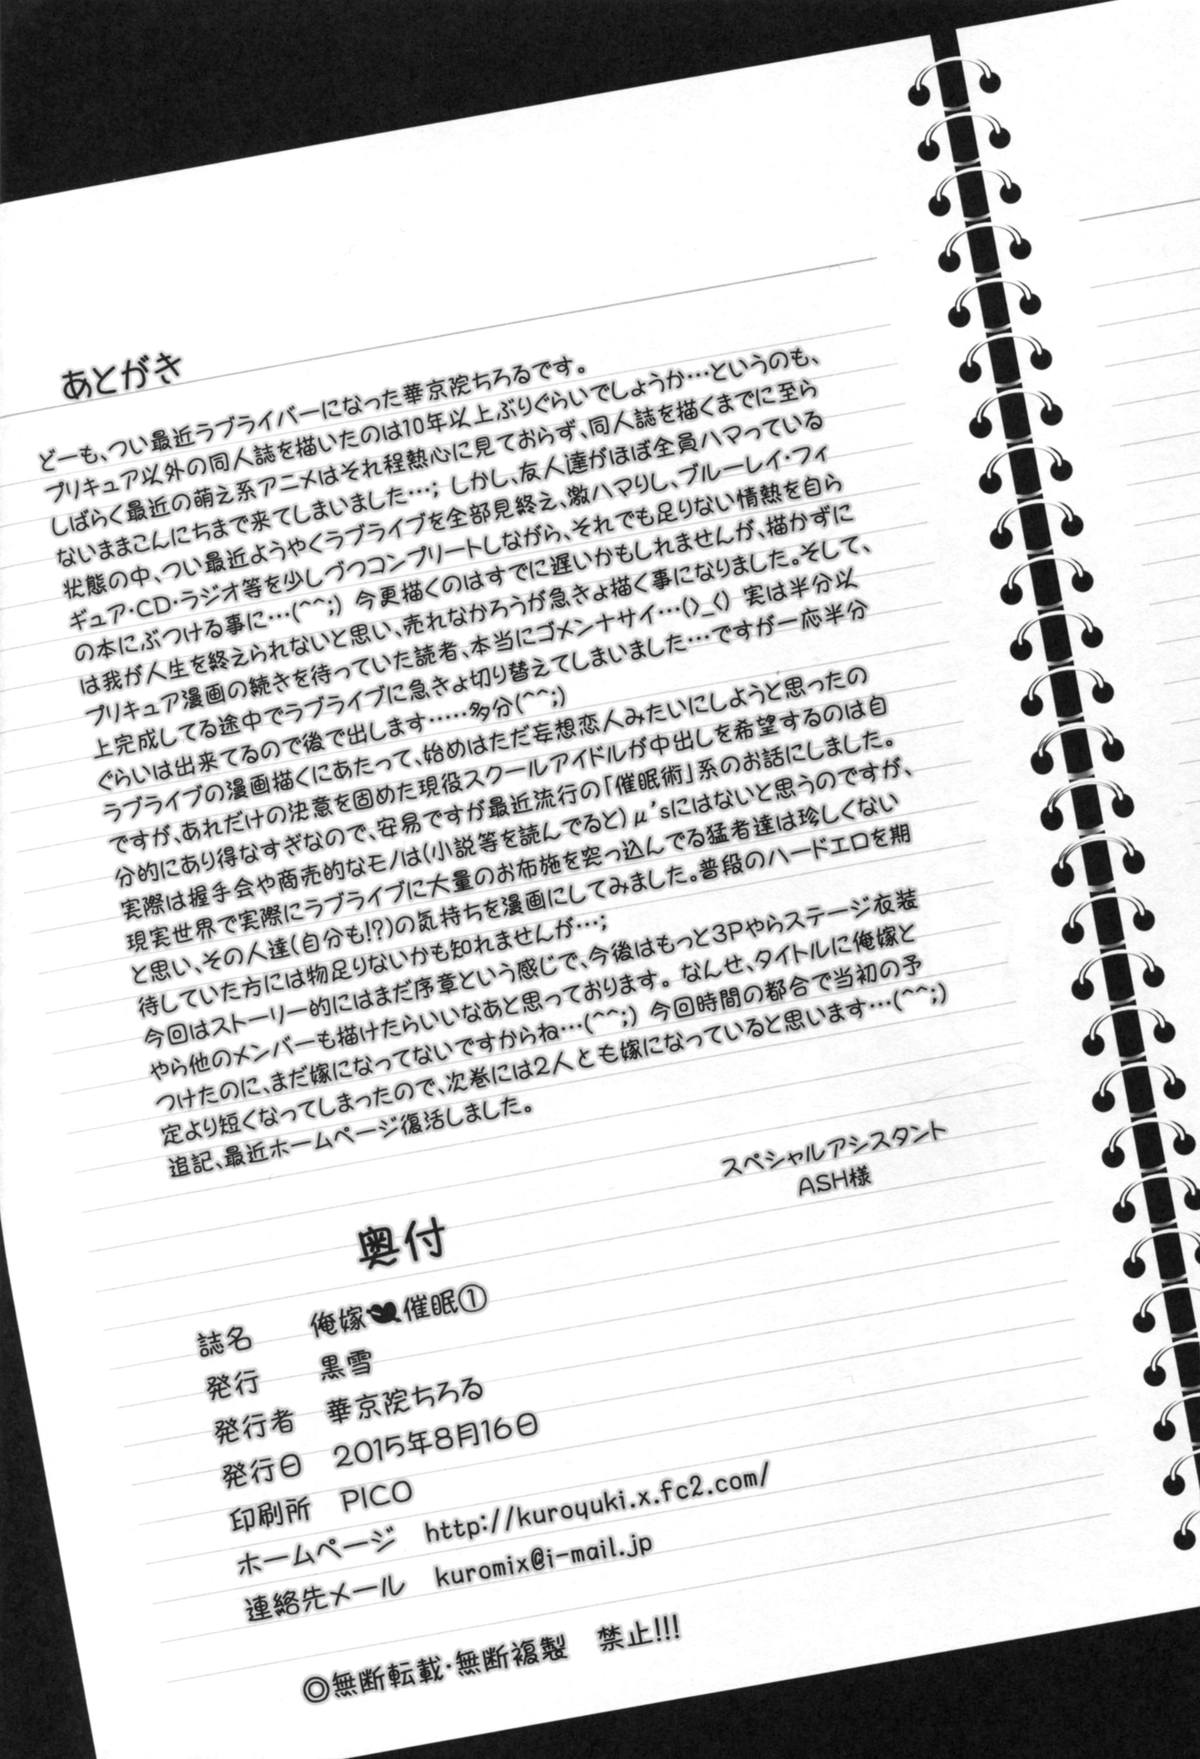 あとがき
どーも、つい最近ラブライバーになった華京院ちろるです。
プリキュア以外の同人誌を描いたのは10年以上ぶりぐらいでしょうか…というのも、
しばらく最近の萌え系アニメはそれ程熱心に見ておらず、同人誌を描くまでに至ら
ないままこんにちまで来てしまいました…; しかし、友人達がほぼ全員ハマっている
状態の中、つい最近ようやくラブライブを全部見終え、激ハマりし、ブルーレイ・フィ
ギュア・CD・ラジオ等を少しづつコンプリートしながら、それでも足りない情熱を自ら
の本にぶつける事に…(^^;) 今更描くのはすでに遅いかもしれませんが、描かずに
は我が人生を終えられないと思い、売れなかろうが急きょ描く事になりました。そして、
プリキュア漫画の続きを待っていた読者、本当にゴメンナサイ…(>_<) 実は半分以
上完成してる途中でラブライブに急きょ切り替えてしまいました…ですが一応半分
ぐらいは出来てるので後で出します……多分(^^;)
ラブライブの漫画描くにあたって、始めはただ妄想恋人みたいにしようと思ったの
ですが、あれだけの決意を固めた現役スクールアイドルが中出しを希望するのは自
分的にあり得なすぎなので、安易ですが最近流行の「催眠術」系のお話にしました。
実際は握手会や商売的なモノは(小説等を読んでると)μ'sにはないと思うのですが、
現実世界で実際にラブライブに大量のお布施を突っ込んでる猛者達は珍しくない
と思い、その人達(自分も!?)の気持ちを漫画にしてみました。普段のハードエロを期
待していた方には物足りないかも知れませんが…;
今回はストーリー的にはまだ序章という感じで、今後はもっと3Pやらステージ衣装
やら他のメンバーも描けたらいいなあと思っております。 なんせ、タイトルに俺嫁と
つけたのに、まだ嫁になってないですからね…(^^;) 今回時間の都合で当初の予
定より短くなってしまったので、次巻には2人とも嫁になっていると思います…(^^;)
追記、最近ホームページ復活しました。
スペシャルアシスタント
ASH様
奥付
誌名 俺嫁催眠①
発行 黒雪
発行者 華京院ちろる
発行日 2015年8月16日
印刷所 PICO
ホームページ http://kuroyuki.x.fc2.com/
連絡先メール kuromix@i-mail.jp
◎無断転載・無断複製 禁止!!!